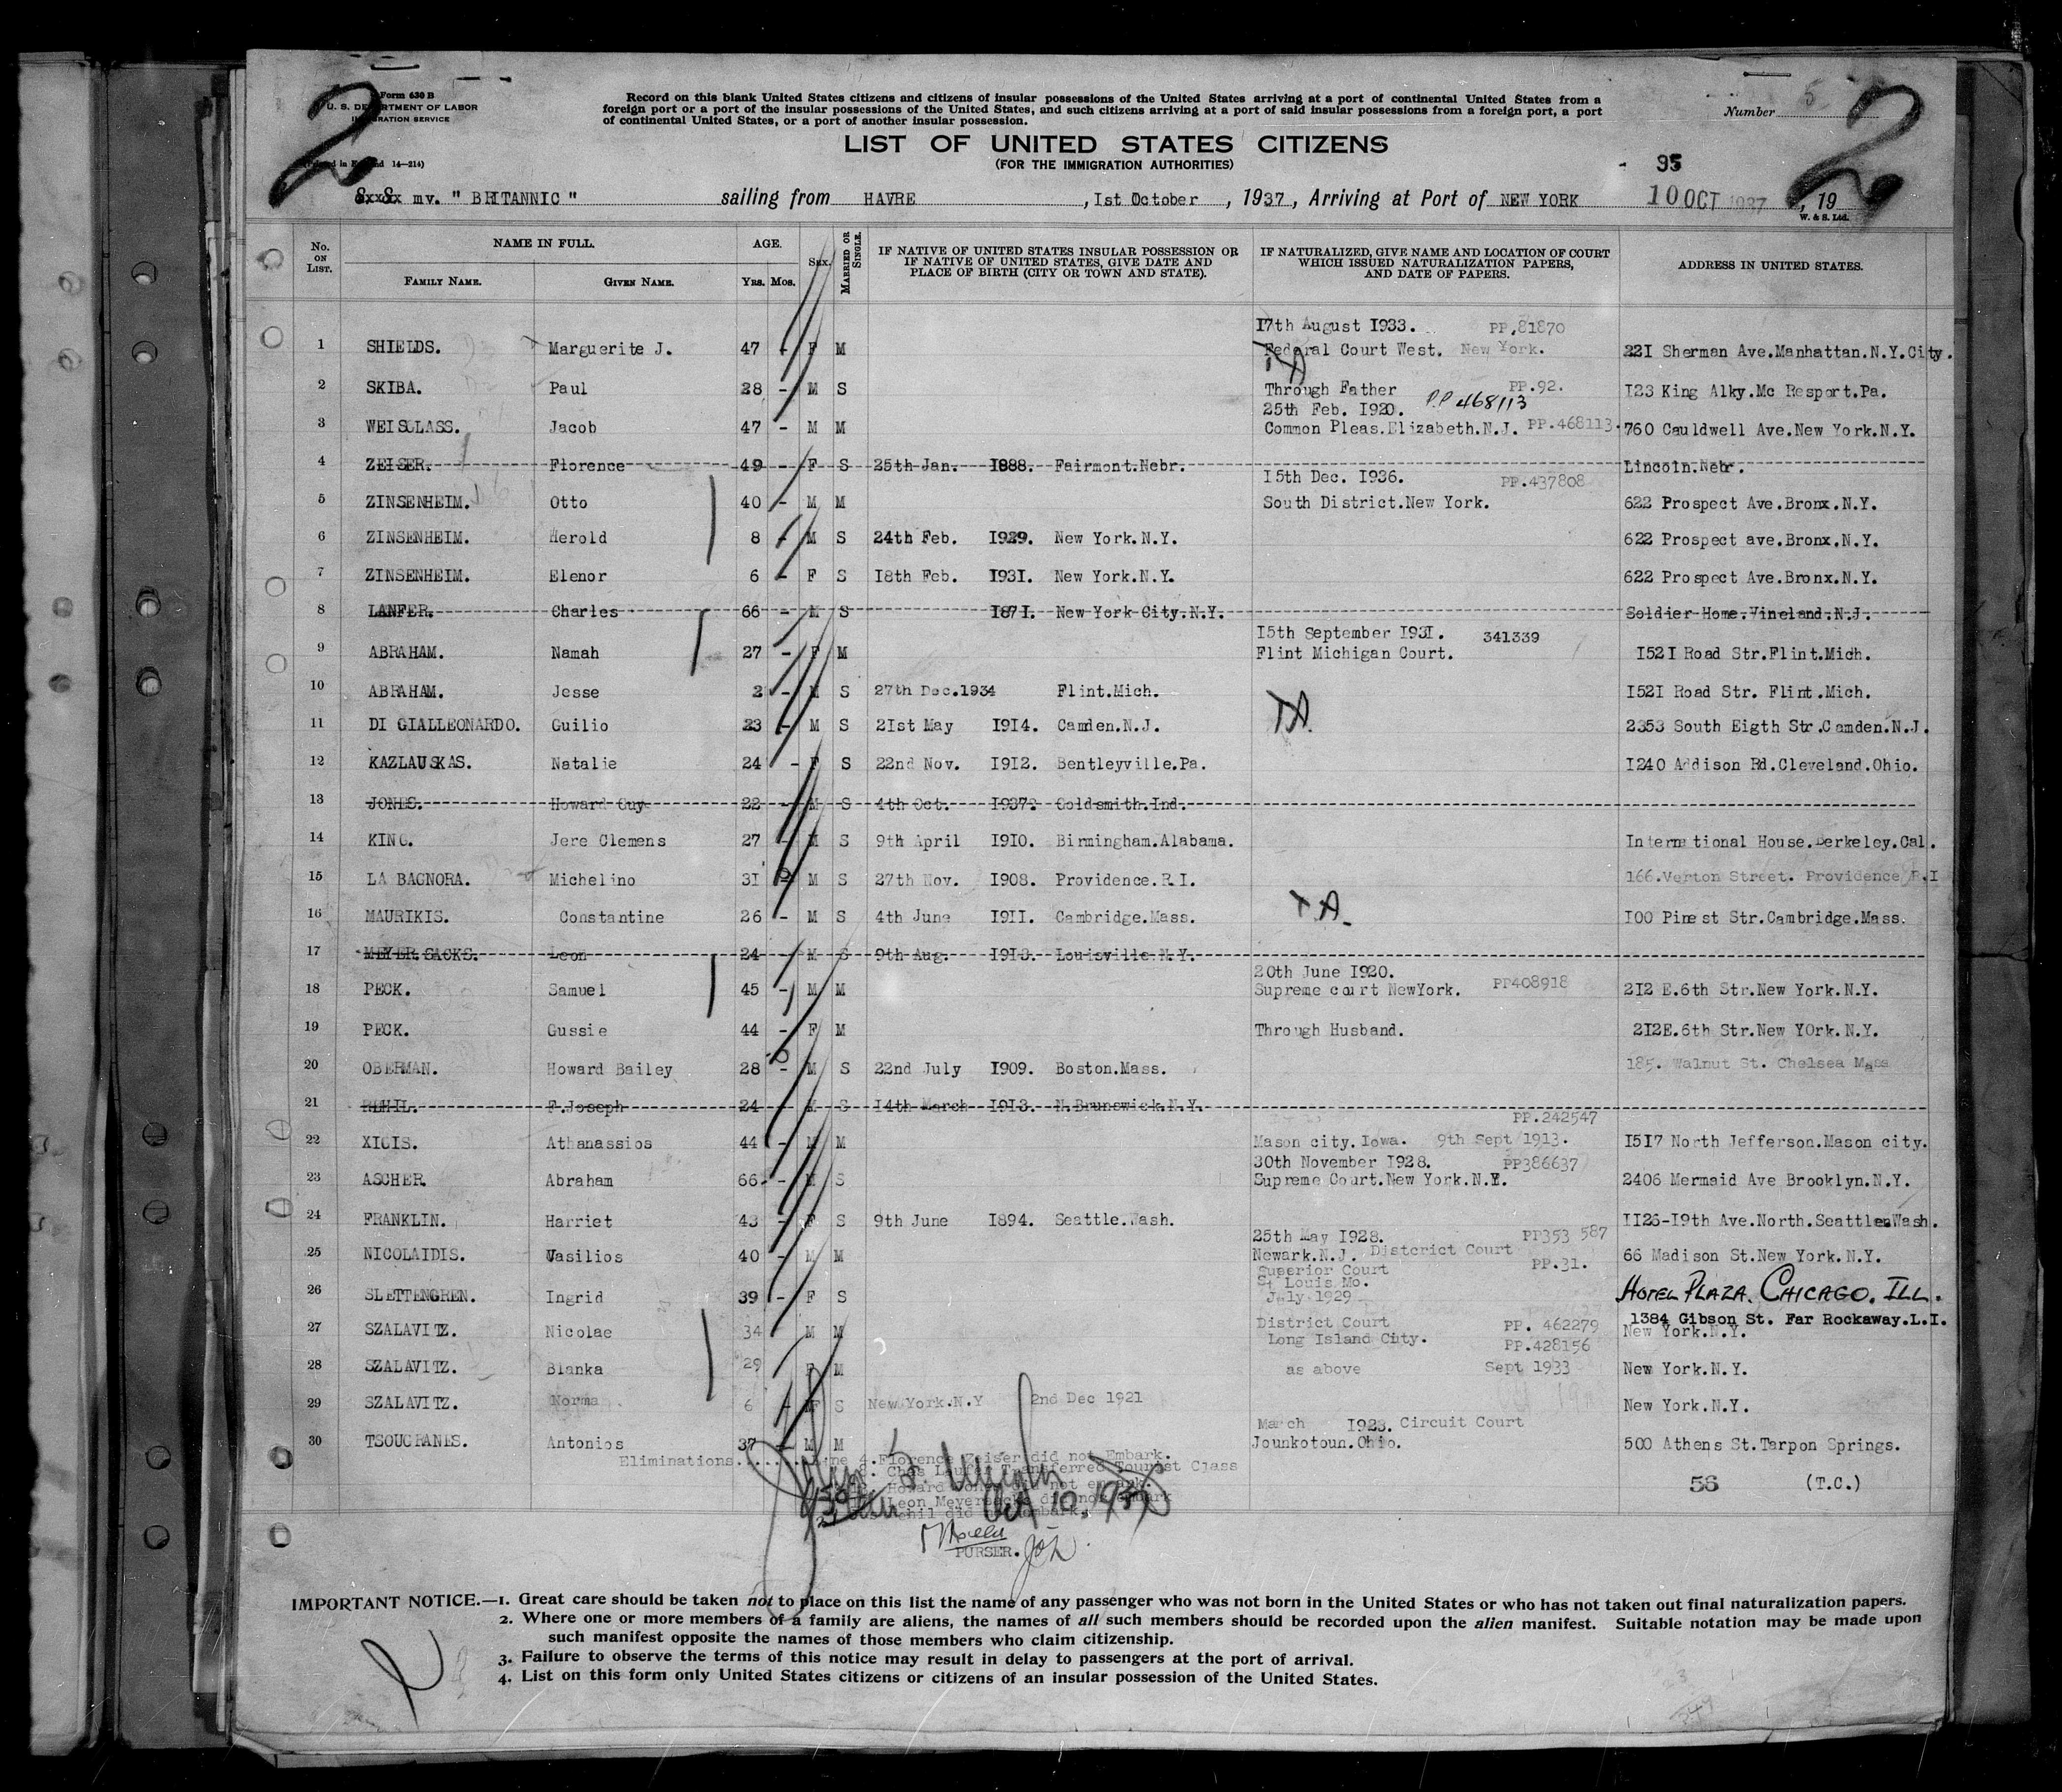 Form 630 B
U. S. DEPARTMENT OF LABOR
IMMIGRATION SERVICE
Record on this blank United States citizens and citizens of insular possessions of the United States arriving at a port of continental United States from a
foreign port or a port of the insular possessions of the United States, and such citizens arriving at a port of said insular possessions from a foreign port, a port
of continental United States, or a port of another insular possession.
Number 5
2 2
LIST OF UNITED STATES CITIZENS
(FOR THE IMMIGRATION AUTHORITIES)
14—214)
95
mv. "BRITANNIC" sailing from HAVRE, 1st October, 1937, Arriving at Port of NEW YORK 10 OCT 1937, 19
W. & S. Ltd.
No. ON LIST. NAME IN FULL. AGE. SEX. MARRIED OR SINGLE. IF NATIVE OF UNITED STATES INSULAR POSSESSION OR IF NATIVE OF UNITED STATES, GIVE DATE AND PLACE OF BIRTH (CITY OR TOWN AND STATE). IF NATURALIZED, GIVE NAME AND LOCATION OF COURT WHICH ISSUED NATURALIZATION PAPERS, AND DATE OF PAPERS. ADDRESS IN UNITED STATES.
FAMILY NAME. GIVEN NAME. YRS. MOS.
17th August 1933. PP.81870
1 SHIELDS. Marguerite J. 47 - F M Federal Court West. New York. 221 Sherman Ave.Manhattan.N.Y.City.
TA
2 SKIBA. Paul 28 - M S Through Father PP.92. 123 King Alky.Mc Resport.Pa.
25th Feb. 1920. PP 468113
3 WEISGLASS. Jacob 47 - M M Common Pleas.Elizabeth.N.J. PP.468113. 760 Cauldwell Ave.New York.N.Y.
4 ZEISER. Florence 49 - F S 25th Jan. 1888. Fairmont.Nebr. Lincoln.Nebr.
15th Dec. 1936. PP.437808
5 ZINSENHEIM. Otto 40 - M M South District.New York. 622 Prospect Ave.Bronx.N.Y.
6 ZINSENHEIM. Herold 8 - M S 24th Feb. 1929. New York.N.Y. 622 Prospect ave.Bronx.N.Y.
7 ZINSENHEIM. Elenor 6 - F S 18th Feb. 1931. New York.N.Y. 622 Prospect Ave.Bronx.N.Y.
8 LANFER. Charles 66 - M S 1871. New York City.N.Y. Soldier Home.Vineland.N.J.
15th September 1931. 341339
9 ABRAHAM. Namah 27 - F M Flint Michigan Court. 1521 Road Str.Flint.Mich.
10 ABRAHAM. Jesse 2 - M S 27th Dec.1934 Flint.Mich. 1521 Road Str. Flint.Mich.
11 DI GIALLEONARDO. Guilio 23 - M S 21st May 1914. Camden.N.J. TA. 2353 South Eigth Str.Camden.N.J.
12 KAZLAUSKAS. Natalie 24 - F S 22nd Nov. 1912. Bentleyville.Pa. 1240 Addison Rd.Cleveland.Ohio.
13 JONES. Howard Guy 22 - M S 4th Oct. 1937? Goldsmith.Ind.
14 KING. Jere Clemens 27 - M S 9th April 1910. Birmingham.Alabama. International House.Berkeley.Cal.
15 LA BAGNORA. Michelino 31 M S 27th Nov. 1908. Providence.R.I. 166.Verton Street. Providence R.I
16 MAURIKIS. Constantine 26 - M S 4th June 1911. Cambridge.Mass. T.A. 100 Pinest Str.Cambridge.Mass.
17 MEYER SACKS. Leon 24 - M S 9th Aug. 1913. Louisville.N.Y.
20th June 1920. PP408918
18 PECK. Samuel 45 - M M Supreme court NewYork. 212 E.6th Str.New York.N.Y.
19 PECK. Gussie 44 - F M Through Husband. 212E.6th Str.New YOrk.N.Y.
20 OBERMAN. Howard Bailey 28 - M S 22nd July 1909. Boston.Mass. 185. Walnut St. Chelsea Mass
21 F.Joseph 24 - M S 14th March 1913. N.Brunswick.N.Y.
PP.242547
22 XIGIS. Athanassios 44 - M M Mason city.Iowa. 9th Sept 1913. 1517 North Jefferson.Mason city.
30th November 1928. PP386637
23 ASCHER Abraham 66 - M S Supreme Court.New York.N.Y. 2406 Mermaid Ave Brooklyn.N.Y.
24 FRANKLIN. Harriet 43 - F S 9th June 1894. Seattle.Wash. 1126-19th Ave.North.Seattle.Wash.
25th May 1928. PP353 587
25 NICOLAIDIS. Vasilios 40 - M M Newark.N.J. Disterict Court 66 Madison St.New York.N.Y.
Superior Court PP.31.
St Louis Mo.
26 SLETTENGREN. Ingrid 39 - F S July 1929 HOTEL PLAZA. CHICAGO. ILL.
District Court PP. 462279 1384 Gibson St. Far Rockaway.L.I.
27 SZALAVITZ. Nicolae 34 M M Long Island City. PP.428156 New York.N.Y.
28 SZALAVITZ. Blanka 29 F M as above Sept 1933 New York.N.Y.
29 SZALAVITZ. Norma 6 - F S New York.N.Y 2nd Dec 1921 New York.N.Y.
March 1923. Circuit Court
30 TSOUGRANES. Antonios 37 - M M Jounkotoun.Ohio. 500 Athens St.Tarpon Springs.
Eliminations....... Line 4.Florence Zeiser did not Embark.
8. Chas Laufer Transferred Tourist Class
Howard Jones did not embark.
Leon Meyersacks did not embark
did not embark.
Oct 10, 1937
56 (T.C.)
PURSER.
IMPORTANT NOTICE.—1. Great care should be taken not to place on this list the name of any passenger who was not born in the United States or who has not taken out final naturalization papers.
2. Where one or more members of a family are aliens, the names of all such members should be recorded upon the alien manifest. Suitable notation may be made upon
such manifest opposite the names of those members who claim citizenship.
3. Failure to observe the terms of this notice may result in delay to passengers at the port of arrival.
4. List on this form only United States citizens or citizens of an insular possession of the United States.